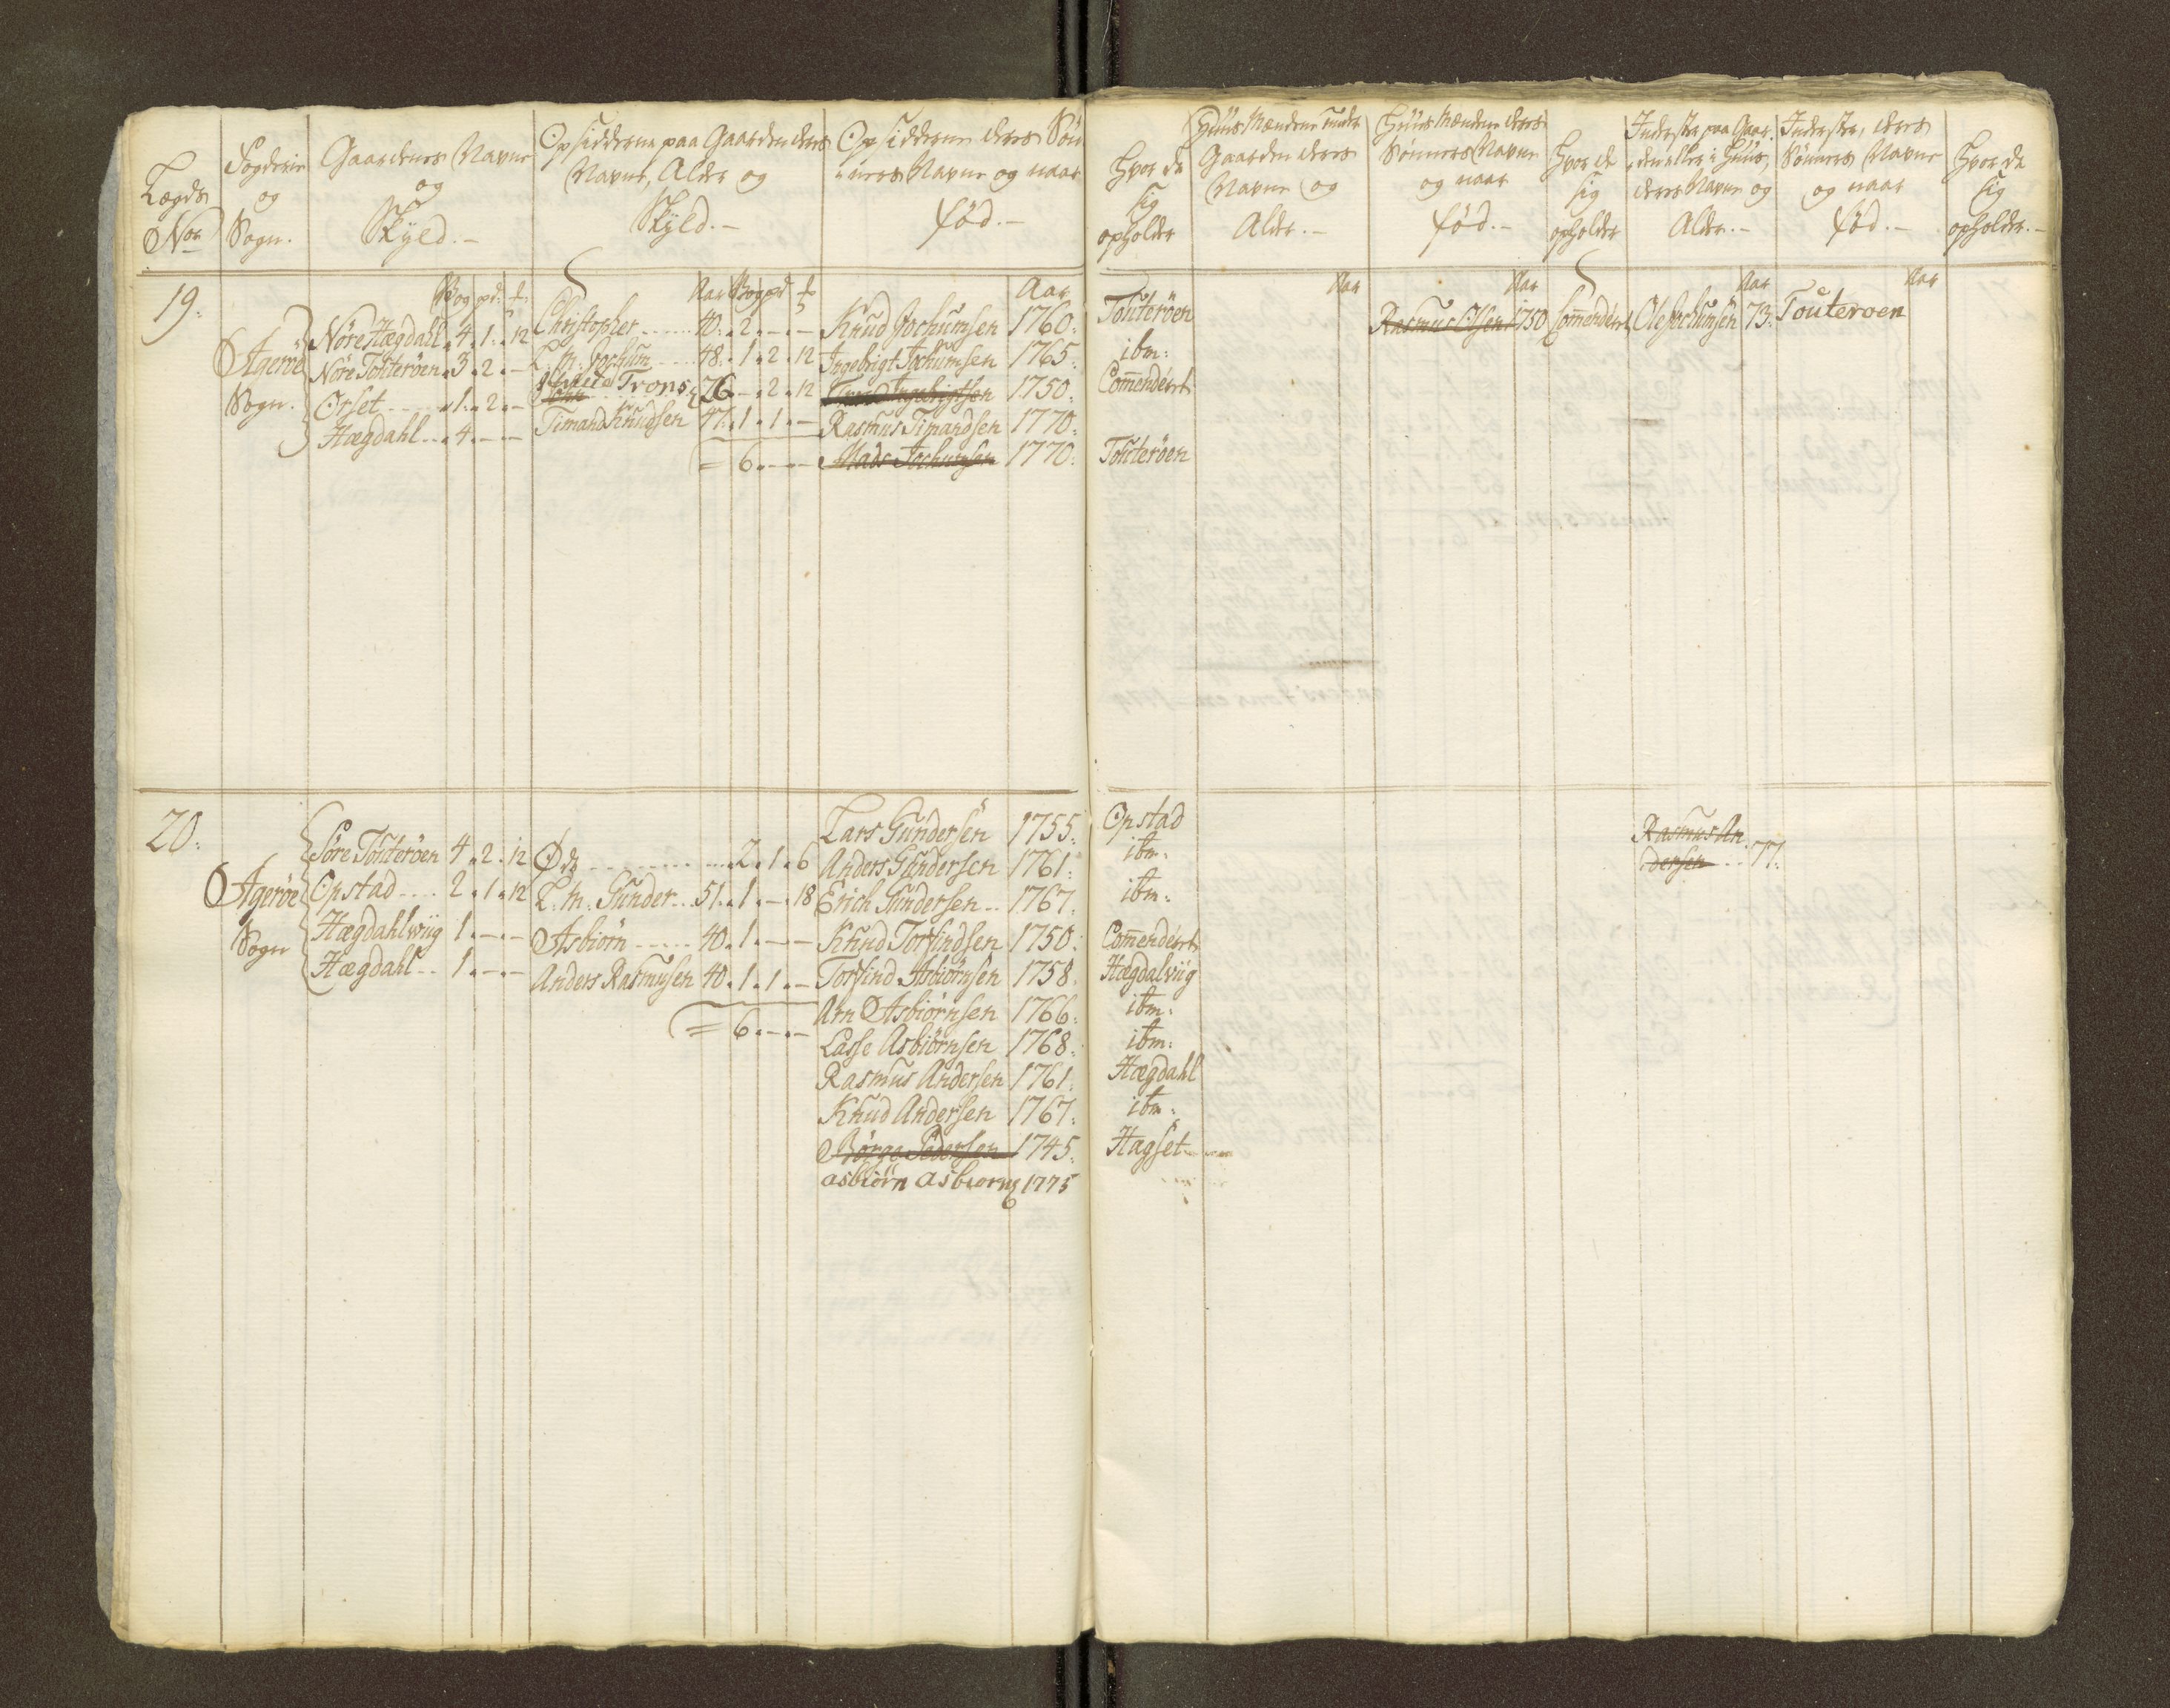 Lægds No
Fogderie og Sogn.
Gaardenes Navne og Skyld.-
Opsidderne paa Gaarden deres Navne, Alder og Skyld.-
Opsidderne deres Sönners Navne og naar fød.-
Hvor de sig opholder
Huusmændene under Gaarden deres Navne og Alder.-
Huusmændene deres Sönners Navne og naar fød.-
Hvor de sig opholder
Inderster paa Gaarden eller i Huus, deres Navne og Alder.-
Inderster, deres Sönners Navne og naar fød.-
Hvor de sig opholder.-
Vog pd. Aar Vog pd Aar Aar Aar Aar Aar
19.
Agerøe Sogn.
Nöre Hægdahl 4. 1. 12 Christopher 40. 2. - - Knud Jochumsen 1760. Toüteröen Rasmus Olsen 1750 Com̄endert Ole Jochumsen 73. Toüteroen
Nöre Toüteröen 3. 2. - L. M. Jochum 48. 1. 2. 12 Ingebrigt Jochumsen 1765. ibm:
Orset 1. 2. - Trons 76 - 2. 12 Ingebrigtsen 1750. Com̄endert
Hægdahl 4. - - Timand Knudsen 47. 1. 1. - Rasmus Timandsen 1770.
= 6. - - Mads Jochumsen 1770. Toüteröen
20.
Agerøe Sogn
Lars Gundersen 1755. Opstad
Söre Toüteröen 4. 2. 12 Øde 2. 1. 6 Anders Gundersen 1761. ibm. Rasmus An
dersen 77.
Opstad 2. 1. 12 L. M. Gunder 51. 1. - 18 Erich Gundersen 1767. ibm.
Hægdahlwiig 1. - - Asbiörn 40. 1. - - Knud Torfindsen 1750. Com̄endert
Hægdahl 1. - - Anders Rasmusen 40. 1. 1. - Torfind Asbiörnsen 1758. Hægdalviig
= 6. - - Arn Asbiörnsen 1766. ibm.
Lasse Asbiörnsen 1768. ibm.
Rasmus Andersen 1761. Hægdahl
Knud Andersen 1767. ibm.
Börge Pedersen 1745. Hagset
asbiörn asbiorns 1775